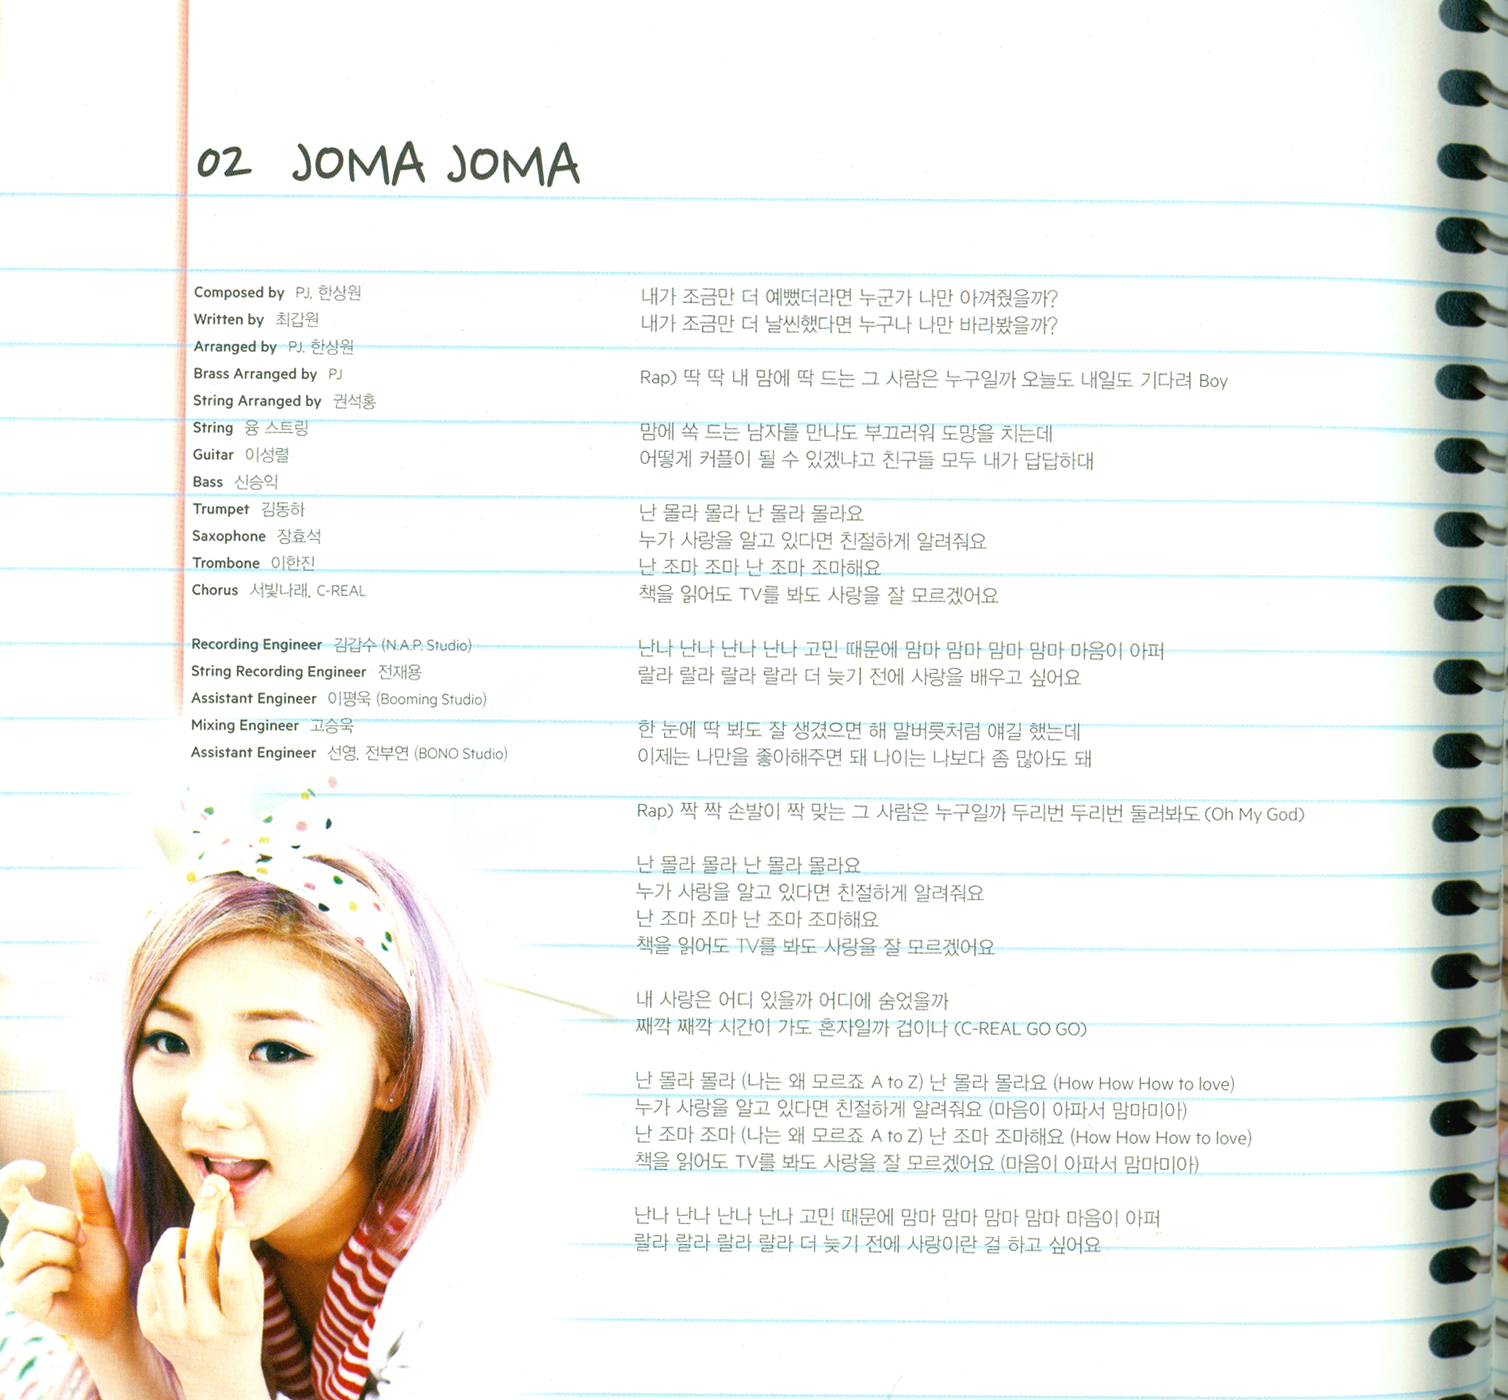 02 JOMA JOMA
Composed by PJ, 한상원
Written by 최갑원
Arranged by PJ, 한상원
Brass Arranged by PJ
String Arranged by 권석홍
String 융 스트링
Guitar 이성렬
Bass 신승익
Trumpet 김동하
Saxophone 장효석
Trombone 이한진
Chorus 서빛나래, C-REAL
Recording Engineer 김갑수 (N.A.P. Studio)
String Recording Engineer 전재용
Assistant Engineer 이평욱 (Booming Studio)
Mixing Engineer 고승욱
Assistant Engineer 선영, 전부연 (BONO Studio)
내가 조금만 더 예뻤더라면 누군가 나만 아껴줬을까?
내가 조금만 더 날씬했다면 누구나 나만 바라봤을까?
Rap) 딱 딱 내 맘에 딱 드는 그 사람은 누구일까 오늘도 내일도 기다려 Boy
맘에 쏙 드는 남자를 만나도 부끄러워 도망을 치는데
어떻게 커플이 될 수 있겠냐고 친구들 모두 내가 답답하대
난 몰라 몰라 난 몰라 몰라요
누가 사랑을 알고 있다면 친절하게 알려줘요
난 조마 조마 난 조마 조마해요
책을 읽어도 TV를 봐도 사랑을 잘 모르겠어요
난나 난나 난나 난나 고민 때문에 맘마 맘마 맘마 맘마 마음이 아퍼
랄라 랄라 랄라 랄라 더 늦기 전에 사랑을 배우고 싶어요
한 눈에 딱 봐도 잘 생겼으면 해 말버릇처럼 얘길 했는데
이제는 나만을 좋아해주면 돼 나이는 나보다 좀 많아도 돼
Rap) 짝 짝 손발이 짝 맞는 그 사람은 누구일까 두리번 두리번 둘러봐도 (Oh My God)
난 몰라 몰라 난 몰라 몰라요
누가 사랑을 알고 있다면 친절하게 알려줘요
난 조마 조마 난 조마 조마해요
책을 읽어도 TV를 봐도 사랑을 잘 모르겠어요
내 사랑은 어디 있을까 어디에 숨었을까
째깍 째깍 시간이 가도 혼자일까 겁이나 (C-REAL GO GO)
난 몰라 몰라 (나는 왜 모르죠 A to Z) 난 몰라 몰라요 (How How How to love)
누가 사랑을 알고 있다면 친절하게 알려줘요 (마음이 아파서 맘마미아)
난 조마 조마 (나는 왜 모르죠 A to Z) 난 조마 조마해요 (How How How to love)
책을 읽어도 TV를 봐도 사랑을 잘 모르겠어요 (마음이 아파서 맘마미아)
난나 난나 난나 난나 고민 때문에 맘마 맘마 맘마 맘마 마음이 아퍼
랄라 랄라 랄라 랄라 더 늦기 전에 사랑이란 걸 하고 싶어요